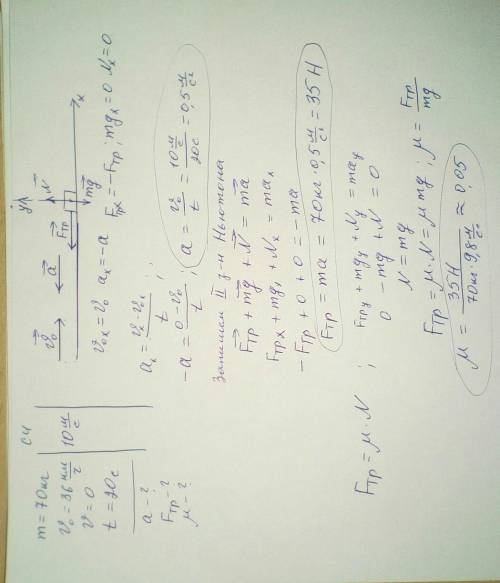 m = 70 кг
СИ
v₀ = 36 км/г
10 м/с
v = 0
t = 20 с
a – ?
Fтр – ?
μ – ?
v⃗₀ a⃗ F⃗тр y N⃗ mg⃗ x
v₀ₓ = v₀ aₓ = -a Fтрₓ = -Fтр ; mgₓ = 0 Nₓ = 0
aₓ = (vₓ - v₀ₓ)/t ;
-a = (0 - v₀)/t ; a = v₀/t = (10 м/с)/(20 с) = 0,5 м/с²
Запишем II з-н Ньютона
F⃗тр + mg⃗ + N⃗ = ma⃗
Fтрₓ + mgₓ + Nₓ = maₓ
-Fтр + 0 + 0 = -ma
Fтр = ma = 70 кг · 0,5 м/с² = 35 Н
Fтр = μ · N ;
Fтр y + mg y + N y = ma y
0 - mg + N = 0
N = mg
Fтр = μ · N = μ mg ; μ = Fтр/mg
μ = 35 Н/(70 кг · 9,8 м/с²) ≈ 0,05